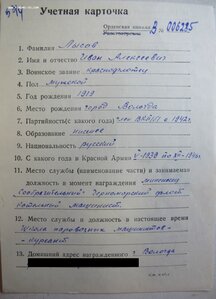 Учетная карточка
Орденская книжка З № 006295
1. Фамилия Лысов
2. Имя и отчество Иван Алексеевич
3. Воинское звание краснофлотец
4. Пол Мужской
5. Год рождения 1919
6. Место рождения город Вологда
7. Партийность (с какого года) член ВКП(б) с 1942 г.
8. Образование низшее
9. Национальность русский
10. С какого года в Красной Армии
11. Место службы (наименование части) и занимаемая
должность в момент награждения миноносец
Сообразительный Черноморский флот
котельный машинист.
12. Место службы и должность в настоящее время
Школа паровозных машинистов -
курсант
13. Домашний адрес награжденного г. Вологда